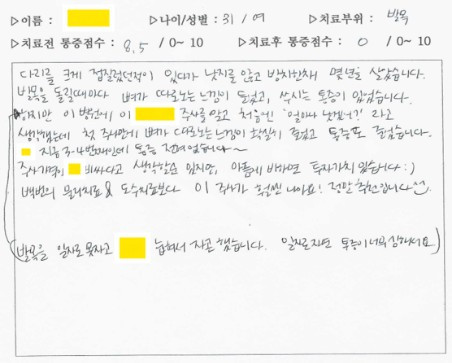 ▷이름 : ▷나이/성별 : 31 / 여 ▷치료부위 : 발목
▷치료전 통증점수 : 8.5 / 0~ 10 ▷치료후 통증점수 : 0 / 0~ 10
다리를 크게 접질렀던적이 있다가 낫지를 않고 방치한채 몇년을 살았습니다.
발목을 돌릴때마다 뼈가 따로노는 느낌이 들었고, 쑤시는 통증이 있었습니다.
하지만 이 병원에 이 주사를 맞고 처음엔 '얼마나 낫겠어?' 라고
생각했는데 첫 주사만에 뼈가 따로노는 느낌이 확실히 줄었고 통증도 줄었습니다.
지금 3-4번째인데 통증 전혀없습니다~
주사가격이 비싸다고 생각할순 있지만, 아픔에 비하면 투자가치 있습니다 :)
백번의 물리치료 & 도수치료보다 이 주사가 훨씬 나아요! 정말 추천입니다^^
(발목을 일자로 못자고 눕혀서 자곤 했습니다. 일자로자면 통증이 너무 심해서요)